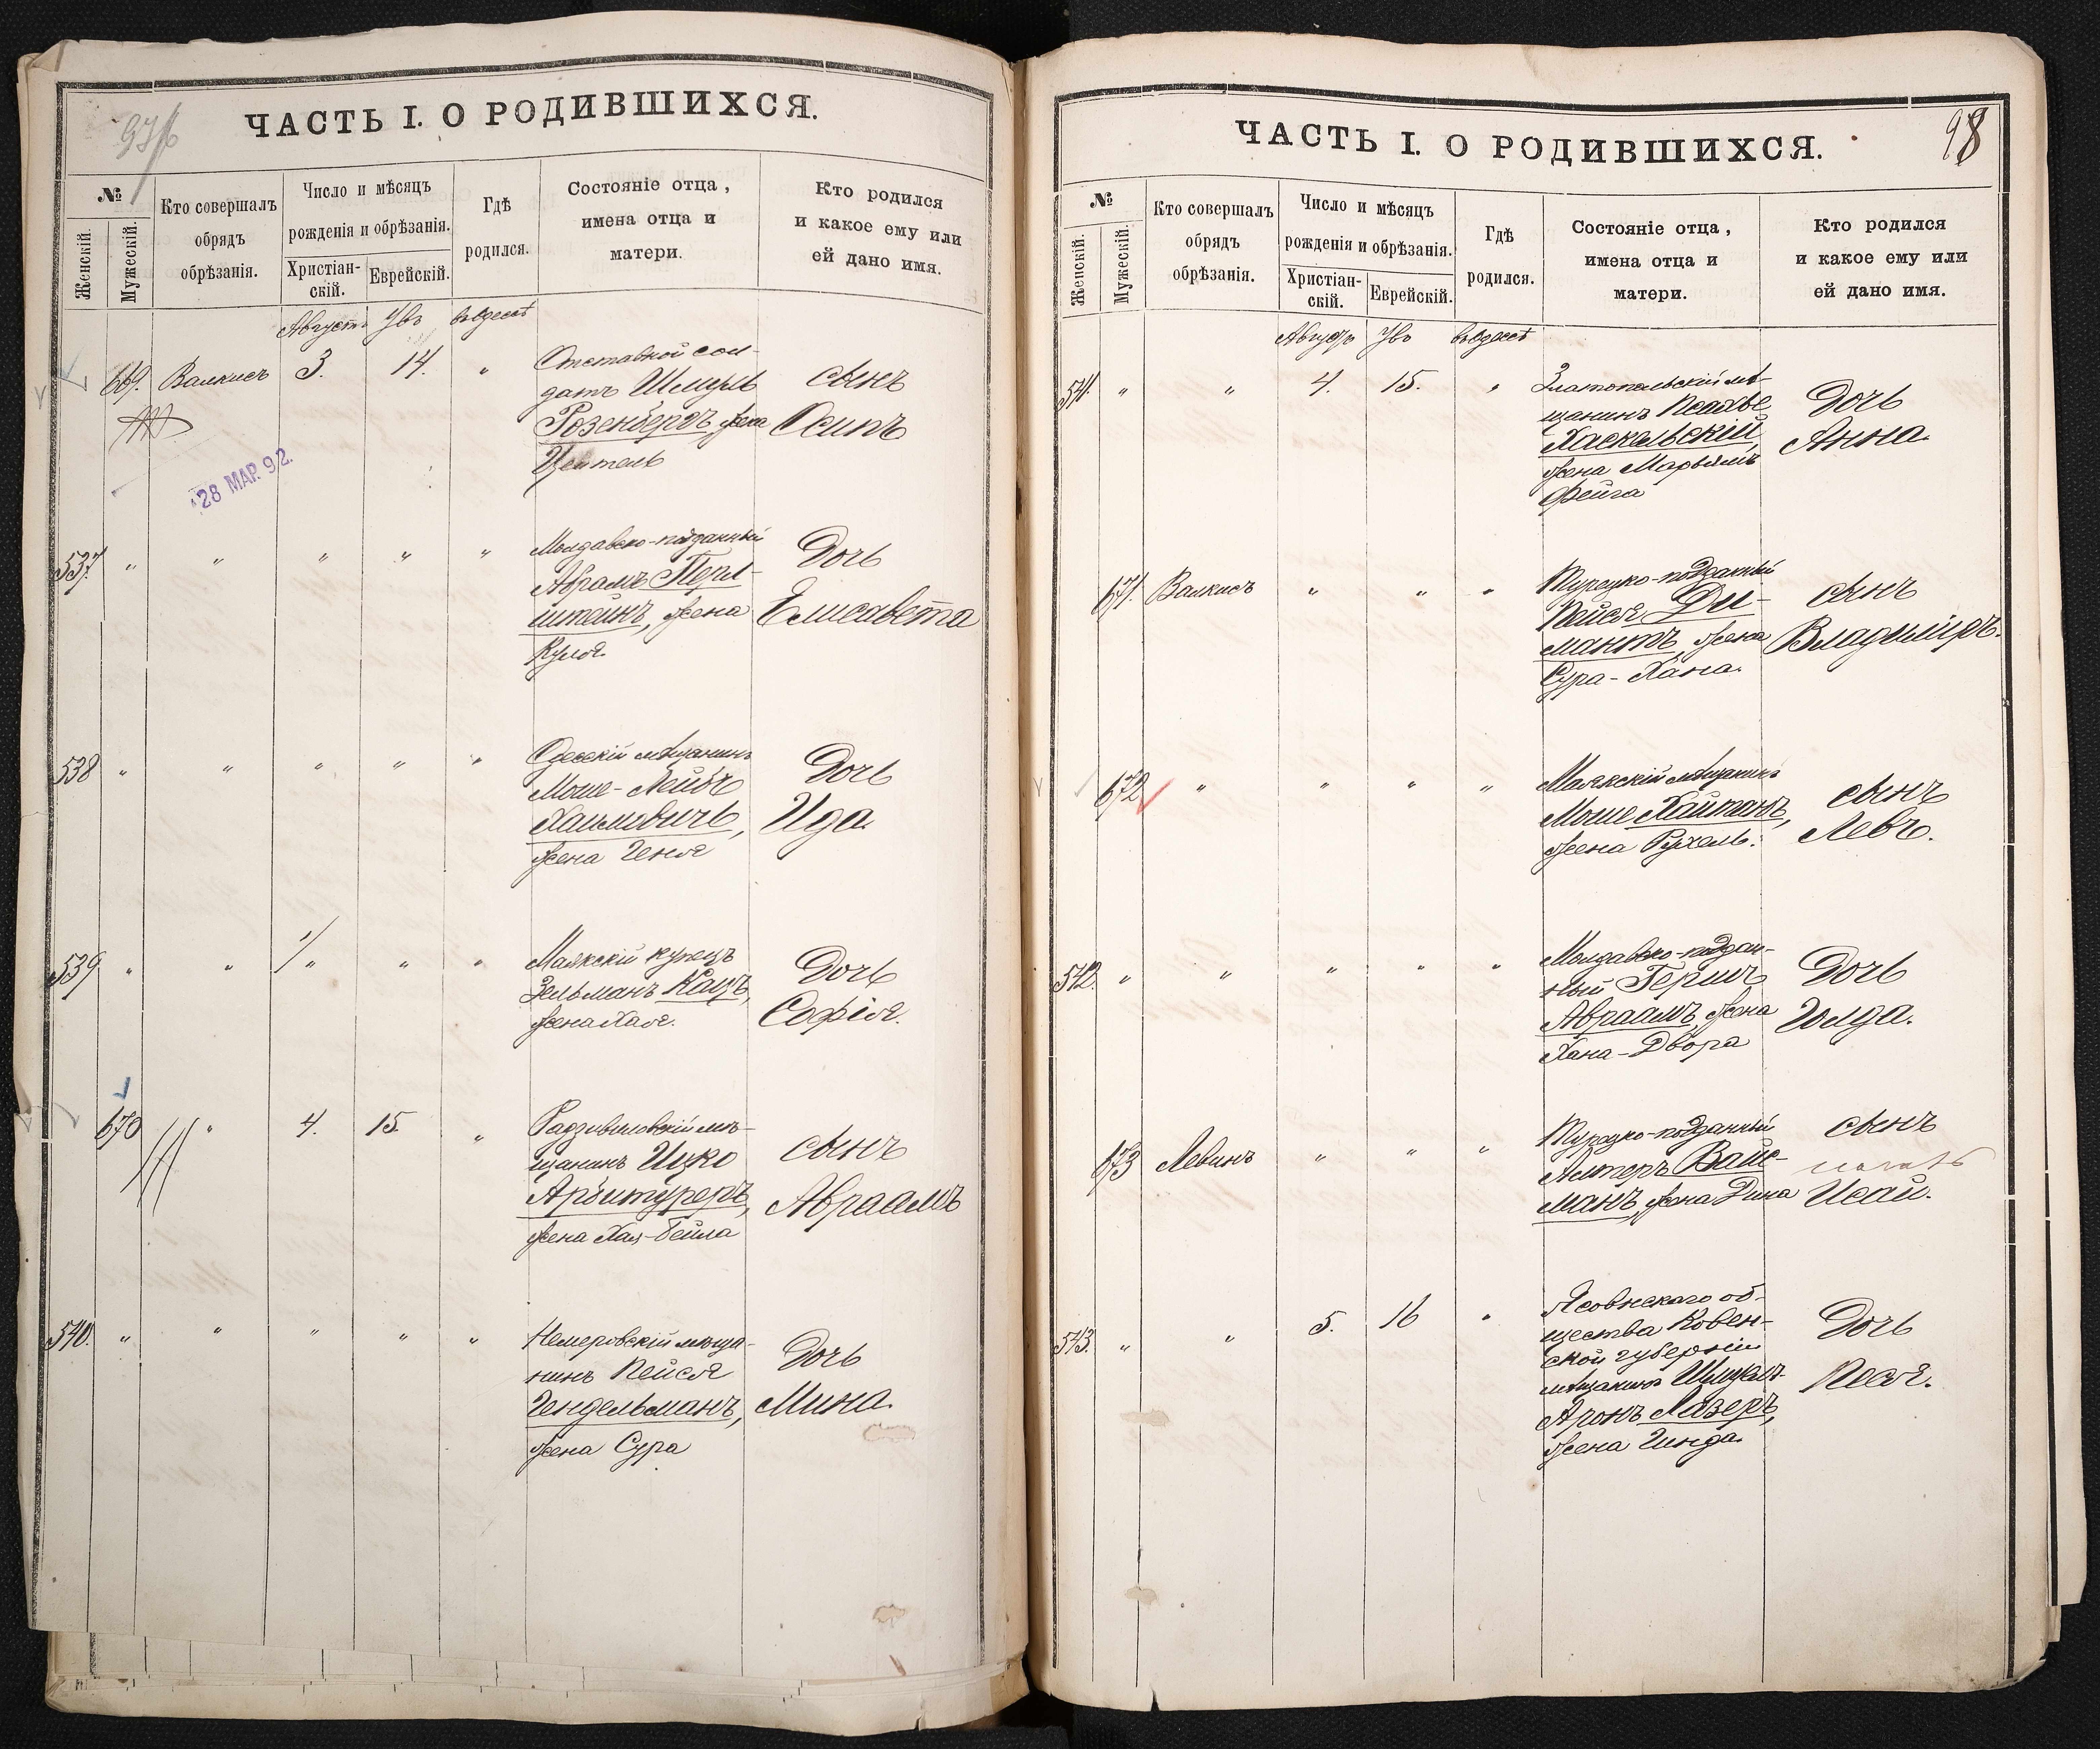 97
ЧАСТЬ I. О РОДИВШИХСЯ.
№
Женскій.
Мужескій.
Кто совершалъ
обрядъ
обрѣзанія.
Число и мѣсяцъ
рожденія и обрѣзанія.
Христіан-
скій.
Еврейскій.
Гдѣ
родился.
Состояніе отца,
имена отца и
матери.
Кто родился
и какое ему или
ей дано имя.
Августъ Увъ въ Одессѣ
669. Валкисъ 3. 14. " Отставной сол-
датъ Шмуль
Розенбергъ, жена
Цейтель
сынъ
Осипъ
28 МАР. 92.
537. " " " " " Молдавско-подданный
Абрамъ Перл-
штейнъ, жена
Куля.
Дочь
Елисавета
538 " " " " " Одесскій мѣщанинъ
Моше-Лейбъ
Хаимовичъ,
жена Геня
Дочь
Ида.
539 " " " " " Маякскій купецъ
Зельманъ Кацъ,
жена Хая.
Дочь
Софія.
670 " 4. 15. " Радзивиловскій мѣ-
щанинъ Ицко
Арбитуреръ,
жена Хая-Бейла
сынъ
Авраамъ
540. " " " " " Немеровскій мѣща-
нинъ Пейся
Гендельманъ,
жена Сура
Дочь
Мина.
98
ЧАСТЬ I. О РОДИВШИХСЯ.
№
Женскій.
Мужескій.
Кто совершалъ
обрядъ
обрѣзанія.
Число и мѣсяцъ
рожденія и обрѣзанія.
Христіан-
скій.
Еврейскій.
Гдѣ
родился.
Состояніе отца,
имена отца и
матери.
Кто родился
и какое ему или
ей дано имя.
Августъ Увъ въ Одессѣ
541. " " 4. 15. " Златопольскій мѣ-
щанинъ
Хаскельскій
жена Марьямъ
Фейга
Дочь
Анна.
671. Валкисъ " " " Турецко-подданный
Пейся Ди-
мантъ, жена
Сура-Хана.
сынъ
Владиміръ.
672 " " " " Маякскій мѣщанинъ
Моше Хайтанъ,
жена Рухель.
сынъ
Левъ.
542. " " " " " Молдавско-поддан-
ный Гершъ
Авраамъ, жена
Хана-Двора
Дочь
Голда.
673 Левинъ " " " Турецко-подданный
Алтеръ Вайс-
манъ, жена Дина
сынъ
Исай.
543. " " 5. 16 " Ясовнскаго об-
щества Ковен-
ской губерніи
мѣщанинъ
Аронъ Лазеръ,
жена Гинда.
Дочь
Песя.